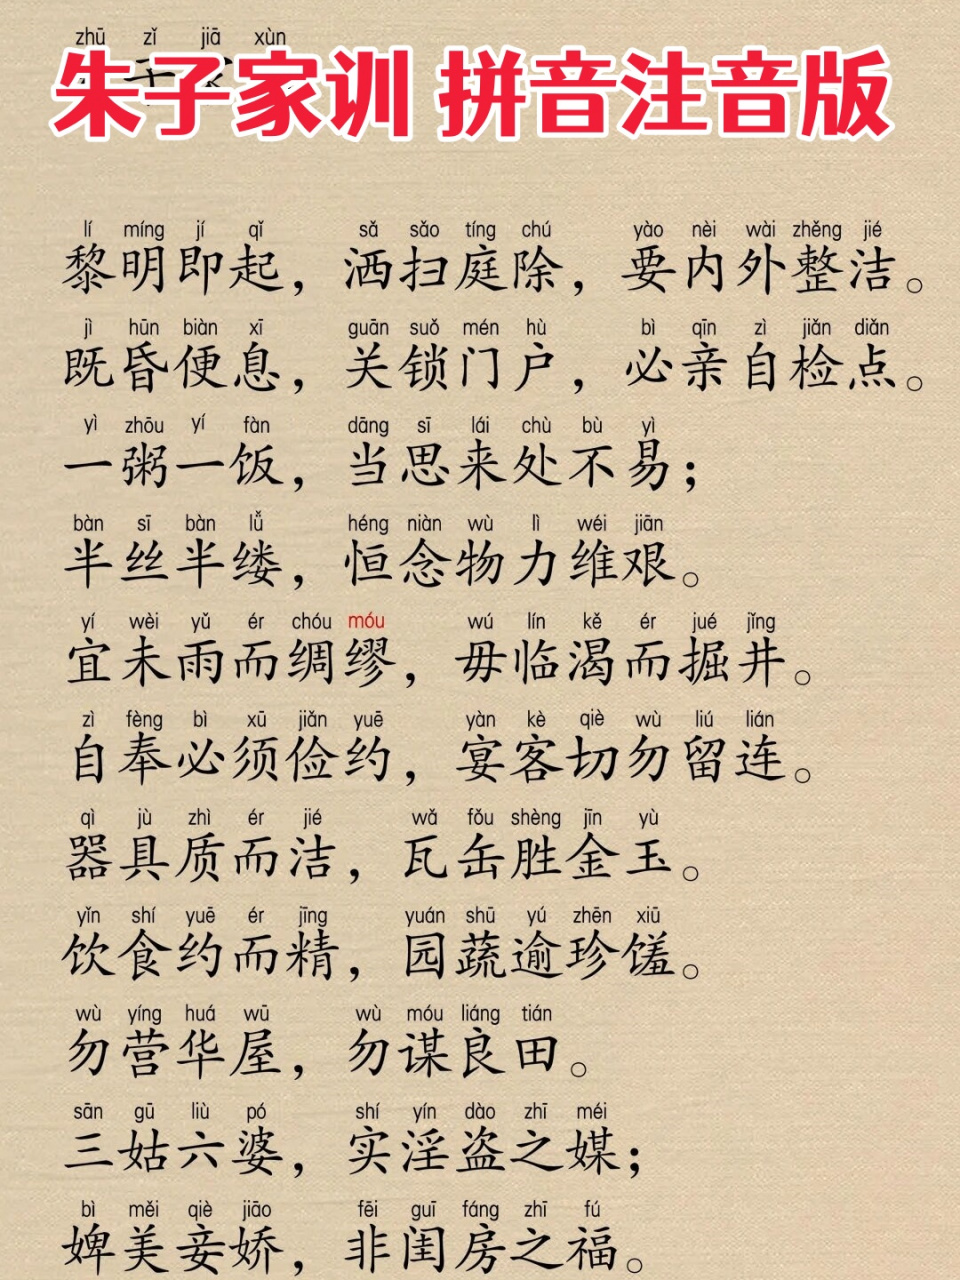 zhū zǐ jiā xùn
朱子家训 拼音注音版
lí míng jí qǐ sǎ sǎo tíng chú yào nèi wài zhěng jié
黎明即起，洒扫庭除，要内外整洁。
jì hūn biàn xī guān suǒ mén hù bì qīn zì jiǎn diǎn
既昏便息，关锁门户，必亲自检点。
yì zhōu yí fàn dāng sī lái chù bù yì
一粥一饭，当思来处不易；
bàn sī bàn lǚ héng niàn wù lì wéi jiān
半丝半缕，恒念物力维艰。
yí wèi yǔ ér chóu móu wú lín kě ér jué jǐng
宜未雨而绸缪，毋临渴而掘井。
zì fèng bì xū jiǎn yuē yàn kè qiè wù liú lián
自奉必须俭约，宴客切勿留连。
qì jù zhì ér jié wǎ fǒu shèng jīn yù
器具质而洁，瓦缶胜金玉。
yǐn shí yuē ér jīng yuán shū yú zhēn xiū
饮食约而精，园蔬逾珍馐。
wù yíng huá wū wù móu liáng tián
勿营华屋，勿谋良田。
sān gū liù pó shí yín dào zhī méi
三姑六婆，实淫盗之媒；
bì měi qiè jiāo fēi guī fáng zhī fú
婢美妾娇，非闺房之福。